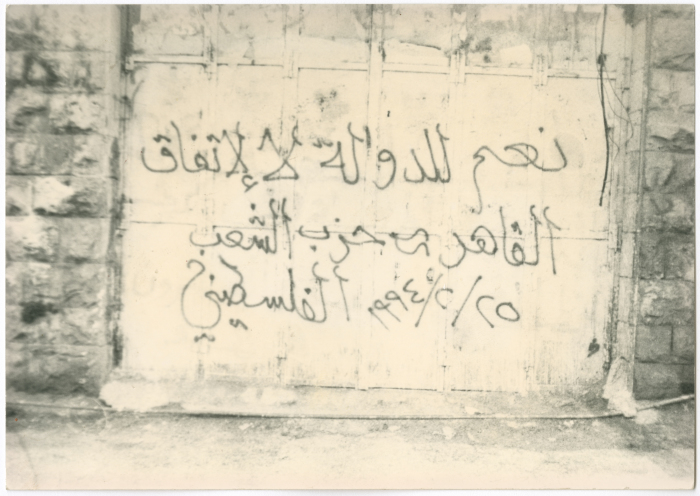 نعم للدولة لا لإتفاق
القاهرة حزب الشعب
الفلسطيني ١٩٩٤/٢/٢٥